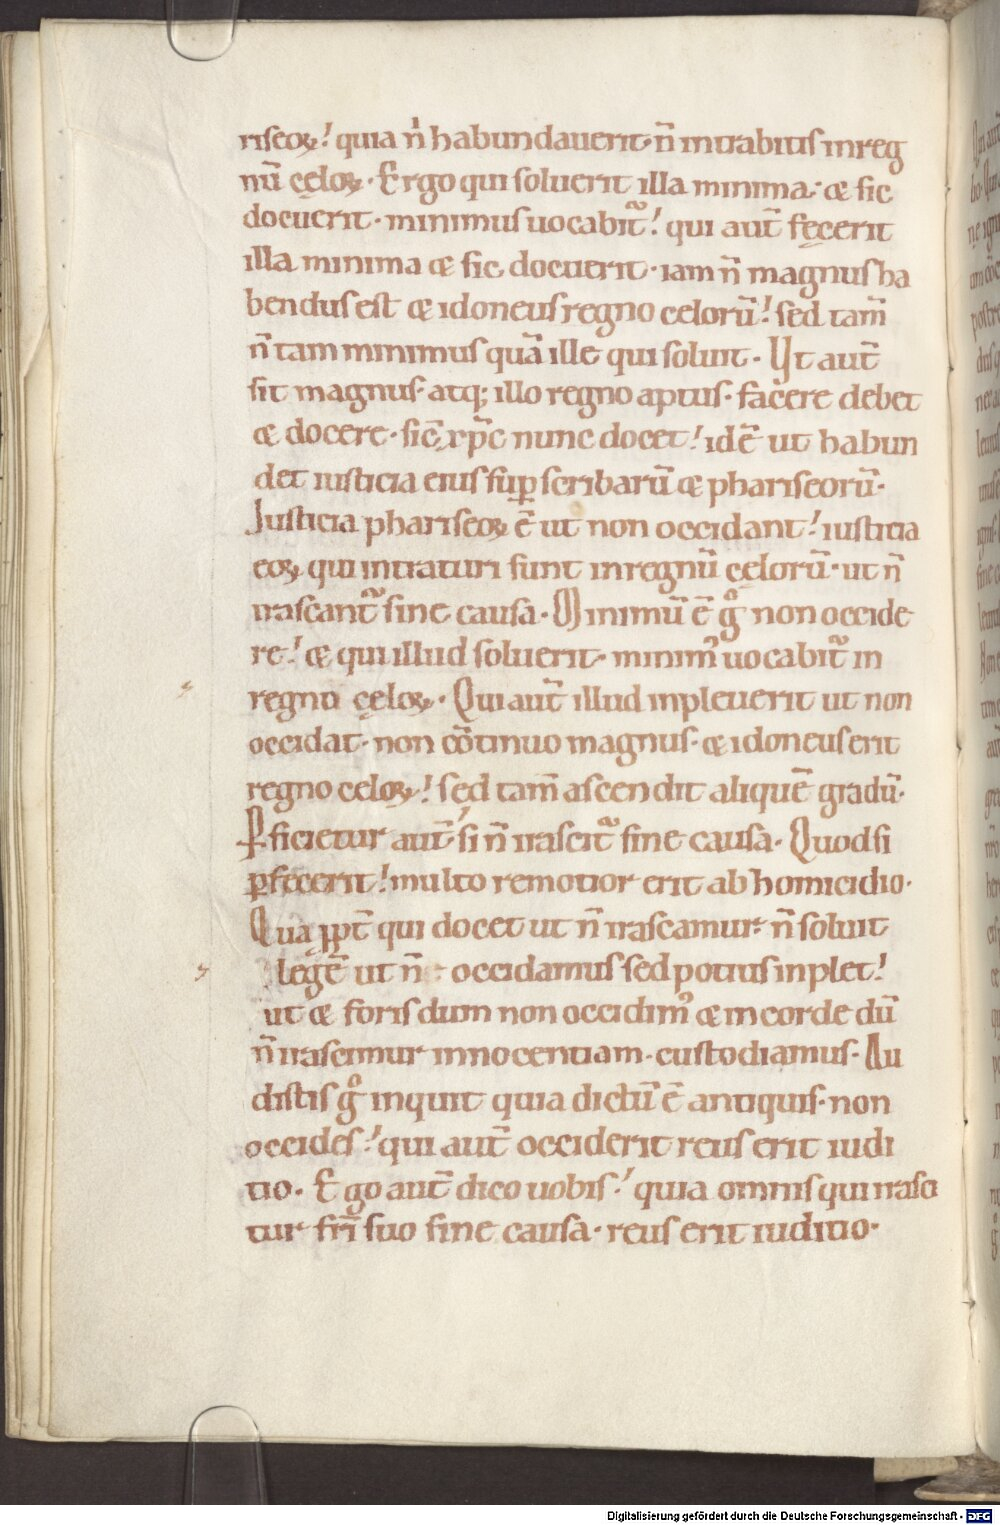 riseoꝝ! quia n̄ habundauerit· n̄ intrabitis inreg
nū cęloꝝ· Ergo qui soluerit illa minima· æ sic
docuerit· minimus uocabit᷑! qui aut̄ fęcerit
illa minima æ sic docuerit· iam n̄ magnus ha
bendus est æ idoneus regno celorū! sed tam̄
n̄ tam minimus quā ille qui soluit· Vt aut̄
sit magnus· atq; illo regno aptus· facere debet
æ docere· sic̄ xp̄c nunc docet! idē ut habun
det iusticia eius suꝑ scribarū æ phariseorū·
Iusticia phariseoꝝ ē ut non occidant! iusticia
eoꝝ qui intraturi sunt inregnū cęlorū· ut n̄
irascant᷑ sine causa· Minimū ē gͦ non occide
re! æ qui illud soluerit· minimꝰ uocabit᷑ in
regno cęloꝝ· Qui aut̄ illud inpleuerit ut non
occidat· non cōtinuo magnus· æ idoneus erit
regno celoꝝ! sed tam̄ ascendit aliquē gradū·
Ꝑficietur aut̄ si n̄ irascit᷑ sine causa· Quodsi
ꝑfecerit! multo remotior erit ab homicidio·
Qua ꝓpt̄ qui docet ut n̄ irascamur· n̄ soluit
legē ut n̄ occidamus sed potius inplet!
ut æ foris dum non occidimꝰ æ in corde dū
n̄ irascimur innocentiam· custodiamus· Au
distis gͦ inquit quia dictū ē antiquis· non
occides! qui aut̄ occiderit reus erit iudi
tio· Ego aut̄ dico uobis! quia omnis qui irasci
tur fr̄i suo sine causa· reus erit iuditio·
Digitalisierung gefördert durch die Deutsche Forschungsgemeinschaft - DFG